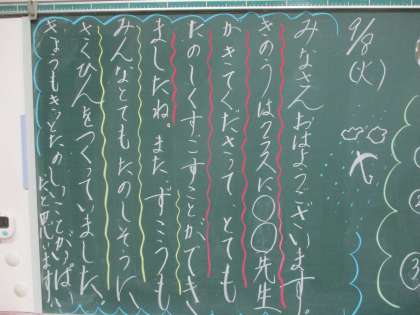 9/8
(火)
みなさんおはようございます。
きのうはクラスに〇〇先生
がきてくださって、とても
たのしくすごすことができ
ましたね。また ずこうも
みんなとてもたのしそうに、
さくひんをつくっていました。
きょうもきっとたのしいことがいっぱい
だと思います。